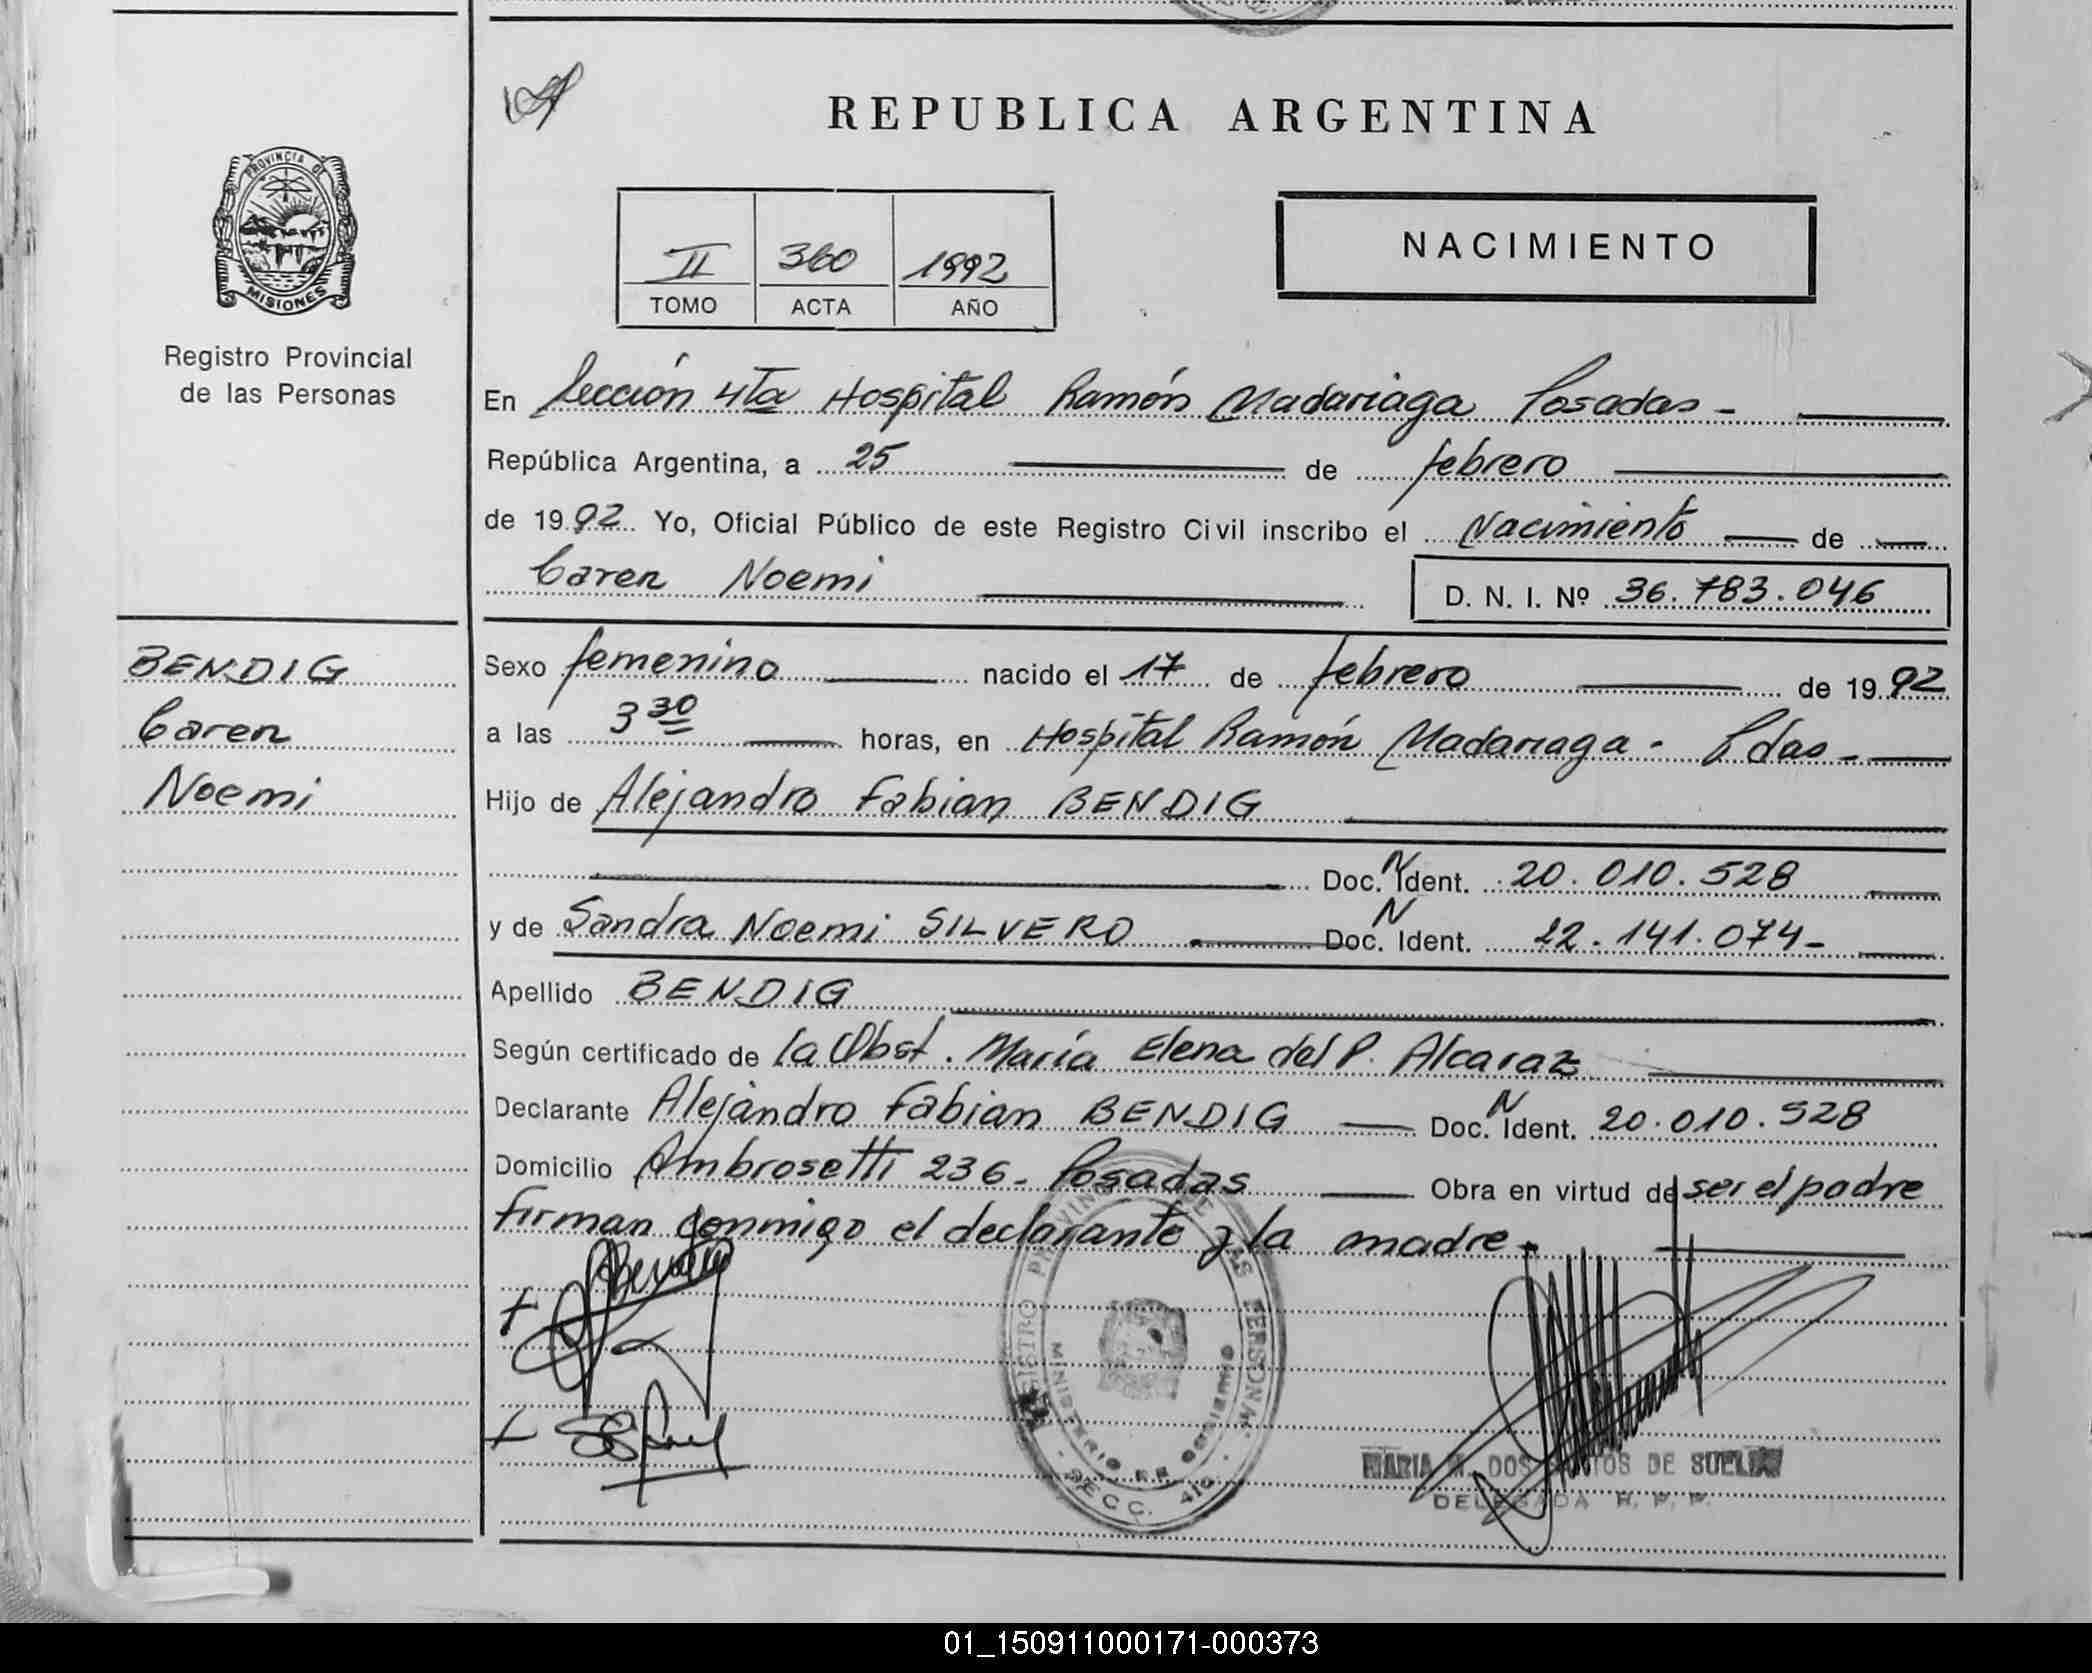 REPUBLICA ARGENTINA
PROVINCIA DE
MISIONES
Registro Provincial
de las Personas
II 360 1992
TOMO ACTA AÑO
NACIMIENTO
En Sección 4Ta Hospital Ramón Madariaga Posadas -
República Argentina, a 25 de febrero
de 1992 Yo, Oficial Público de este Registro Civil inscribo el Nacimiento de
Caren Noemi D. N. I. Nº 36.783.046
BENDIG
Caren
Noemi
Sexo femenino nacido el 17 de febrero de 1992
a las 3 30 horas, en Hospital Ramón Madariaga - Pdas -
Hijo de Alejandro Fabian BENDIG
Doc. N Ident. 20.010.528
y de Sandra Noemi SILVERO Doc. N Ident. 22.141.074-
Apellido BENDIG
Según certificado de la Obst. María Elena del P. Alcaraz
Declarante Alejandro Fabian BENDIG Doc. N Ident. 20.010.528
Domicilio Ambrosetti 236- Posadas Obra en virtud de ser el padre
firman conmigo el declarante y la madre-
MINISTERIO DE GOBIERNO
SECC. 4ta
MARIA DOS SANTOS DE
DELEGADA R. P. P.
01_150911000171-000373